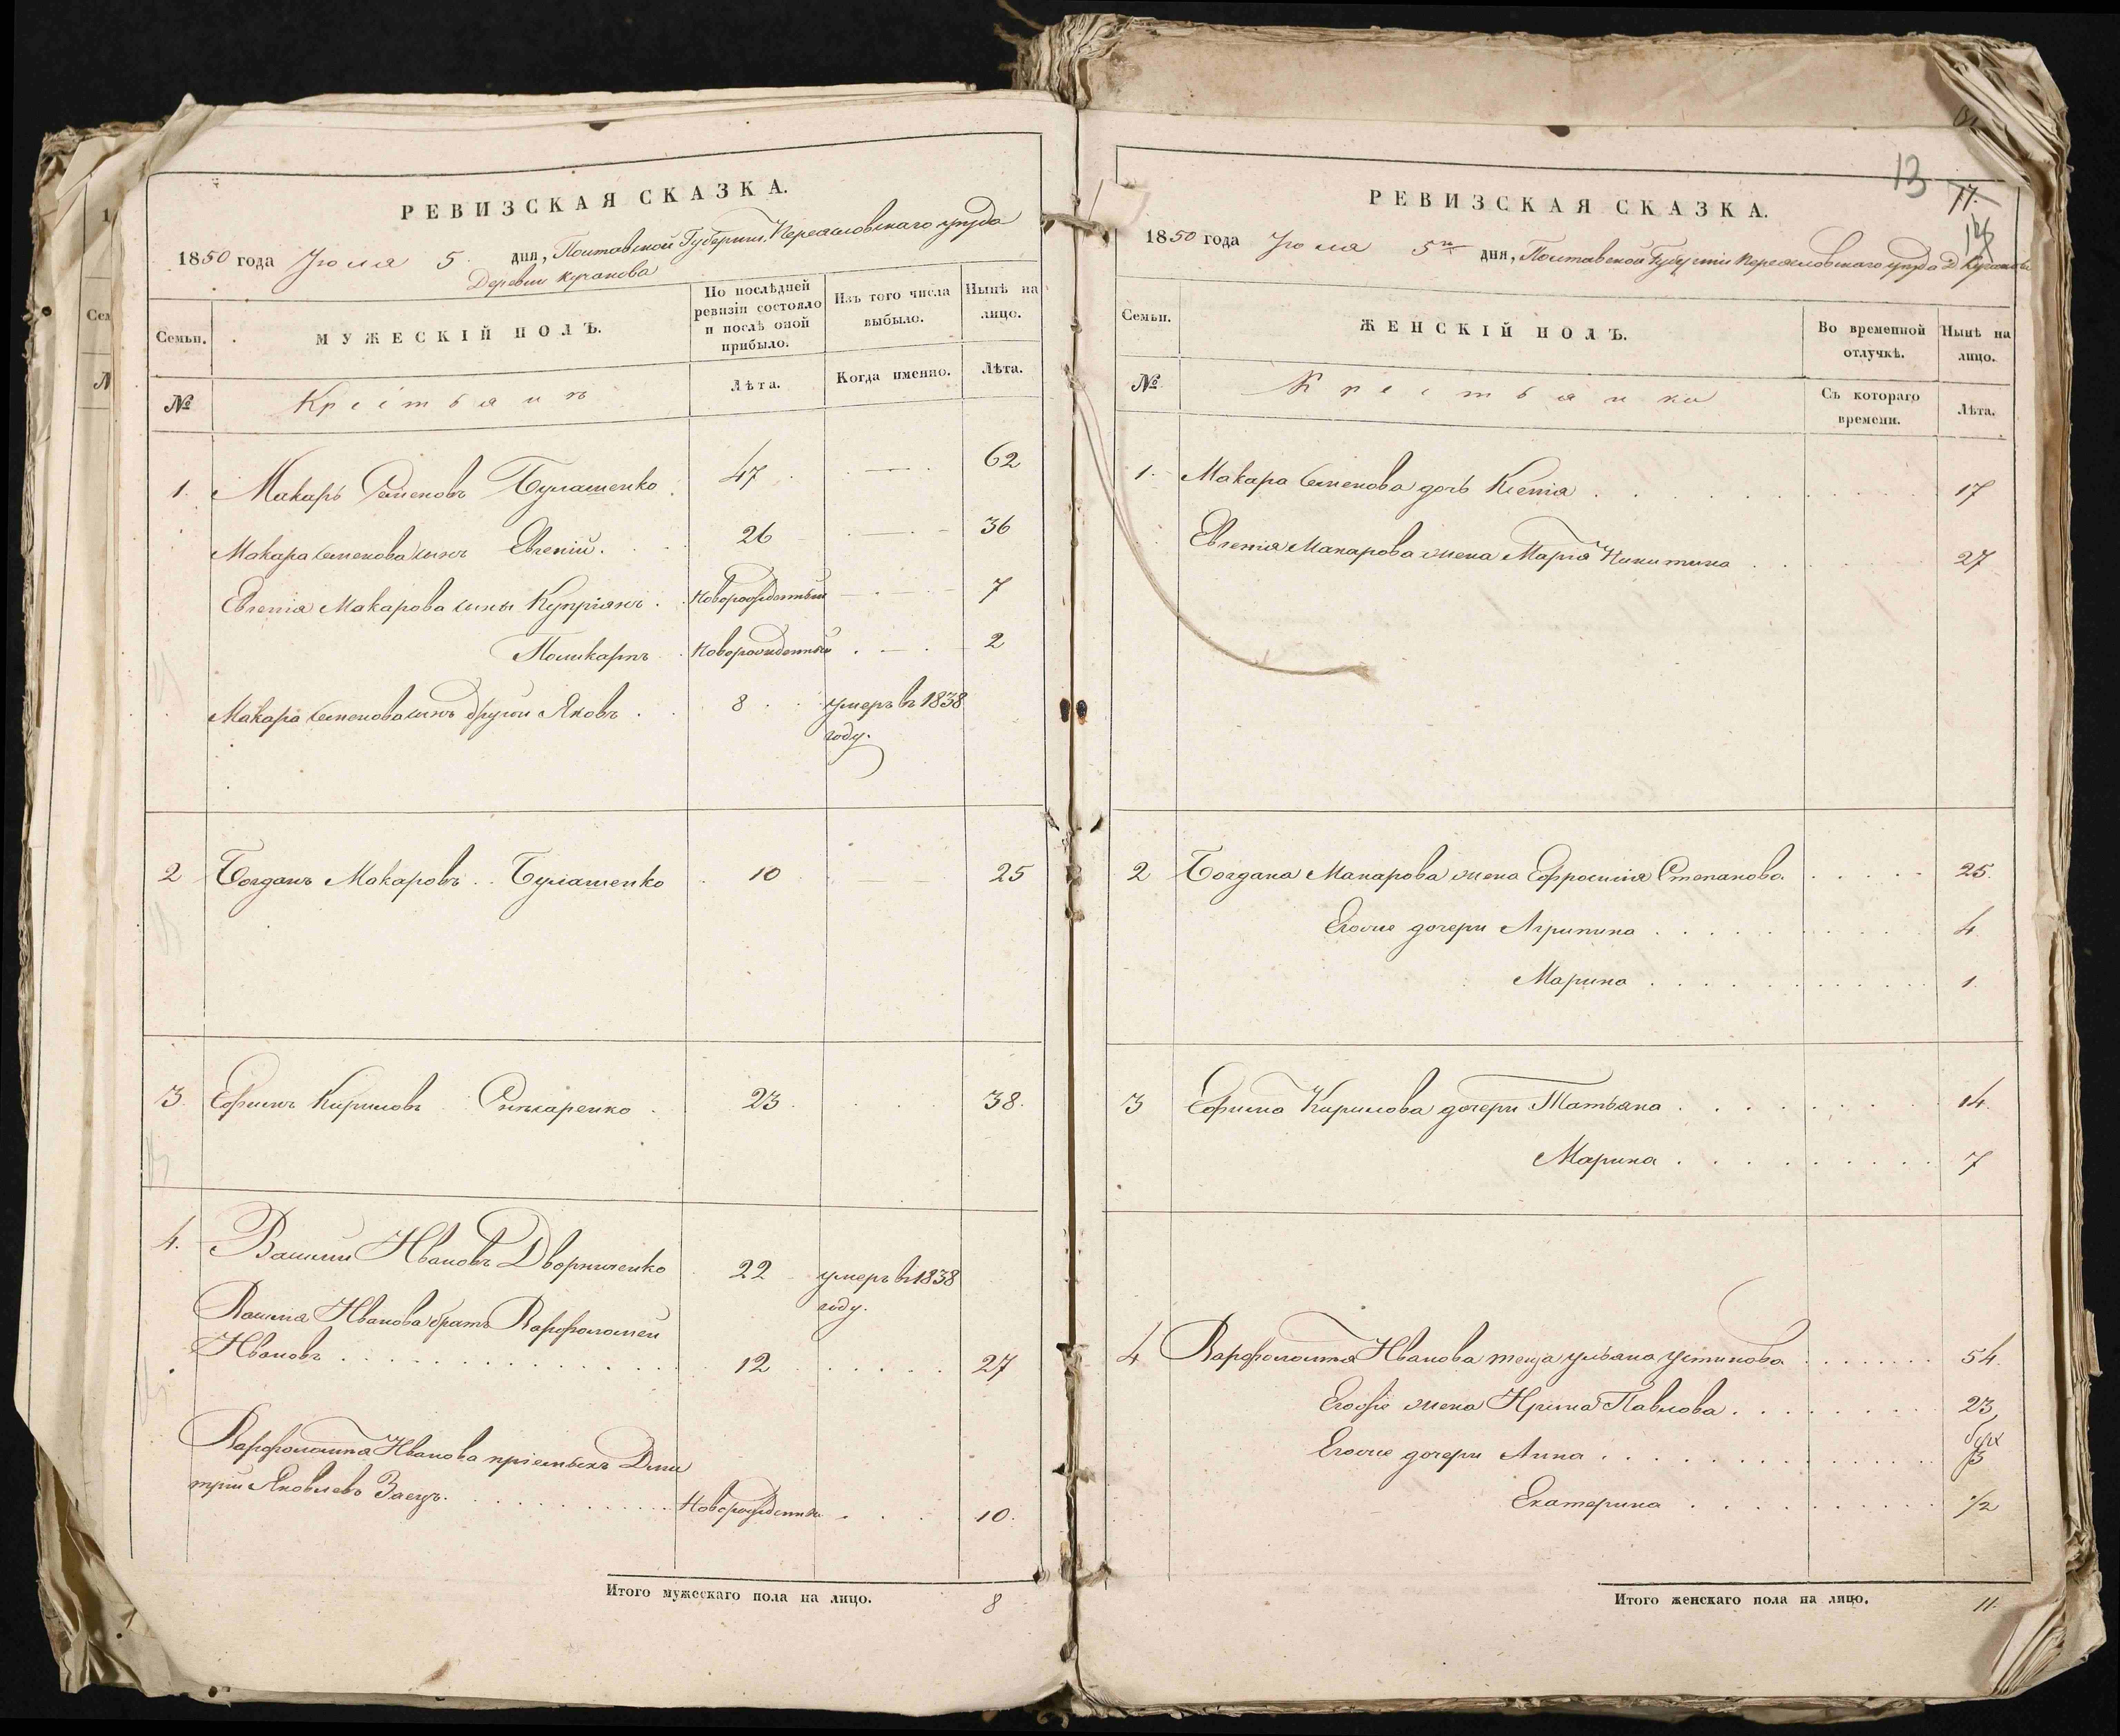 РЕВИЗСКАЯ СКАЗКА.
1850 года Іюля 5 дня, Полтавской Губерніи, Переяславскаго уѣзда
Деревни Кучакова
Семьи.
МУЖЕСКІЙ ПОЛЪ.
По послѣдней
ревизіи состояло
и послѣ оной
прибыло.
Изъ того числа
выбыло.
Нынѣ на
лицо.
№
Крестьянъ
Лѣта.
Когда именно.
Лѣта.
1. Макаръ Семеновъ Булашенко 47 62
Макара Семенова сынъ Евгеній. 26 36
Евгенія Макарова сыны Купріянъ Новорожденный 7
Поликарпъ Новорожденный 2
Макара Семенова сынъ другой Яковъ 8 умеръ въ 1838
году.
2 Богданъ Макаровъ Булашенко 10 25
3 Ефимъ Кириловъ 23 38.
4. Василій Ивановъ Дворниченко 22 умеръ въ 1838
году.
Василія Иванова братъ Варфоломей
Ивановъ 12 27
Варфоломея Иванова пріемышъ Дми
трій Яковлевъ Заецъ. Новорожденный 10.
Итого мужескаго пола на лицо. 8
13
77.
РЕВИЗСКАЯ СКАЗКА.
1850 года Іюля 5го дня, Полтавской Губерніи Переяславскаго уѣзда Д Кучакова
Семьи.
ЖЕНСКІЙ ПОЛЪ.
Во временной
отлучкѣ.
Нынѣ на
лицо.
№
Крестьянка
Съ котораго
времени.
Лѣта.
1. Макара Семенова дочь Ксенія 17
Евгенія Макарова жена Марія Никитина 27
2 Богдана Макарова жена Ефросинія Степанова 25.
Егоже дочери Агрипина 4
Марина 1.
3 Ефима Кирилова дочери Татьяна 14.
Марина 7
4 Варфоломея Иванова теща Ульяна Устинова 54.
Егоже жена Ирина Павлова 23
Егоже дочери Анна 3
Екатерина 1/2
Итого женскаго пола на лицо. 11.